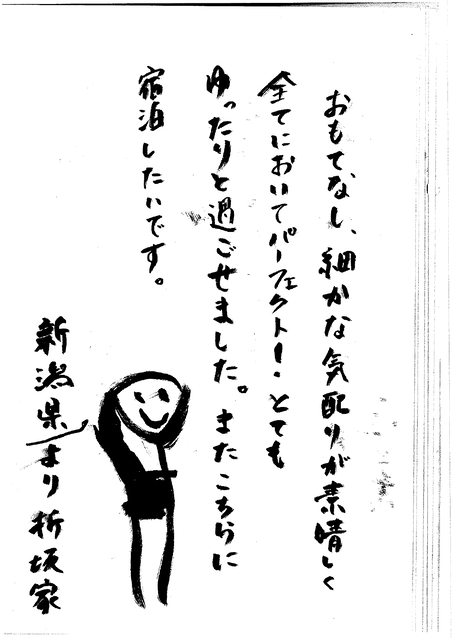 おもてなし、細かな気配りが素晴しく
全てにおいてパーフェクト！とても
ゆったりと過ごせました。またこちらに
宿泊したいです。
新潟県より折坂家